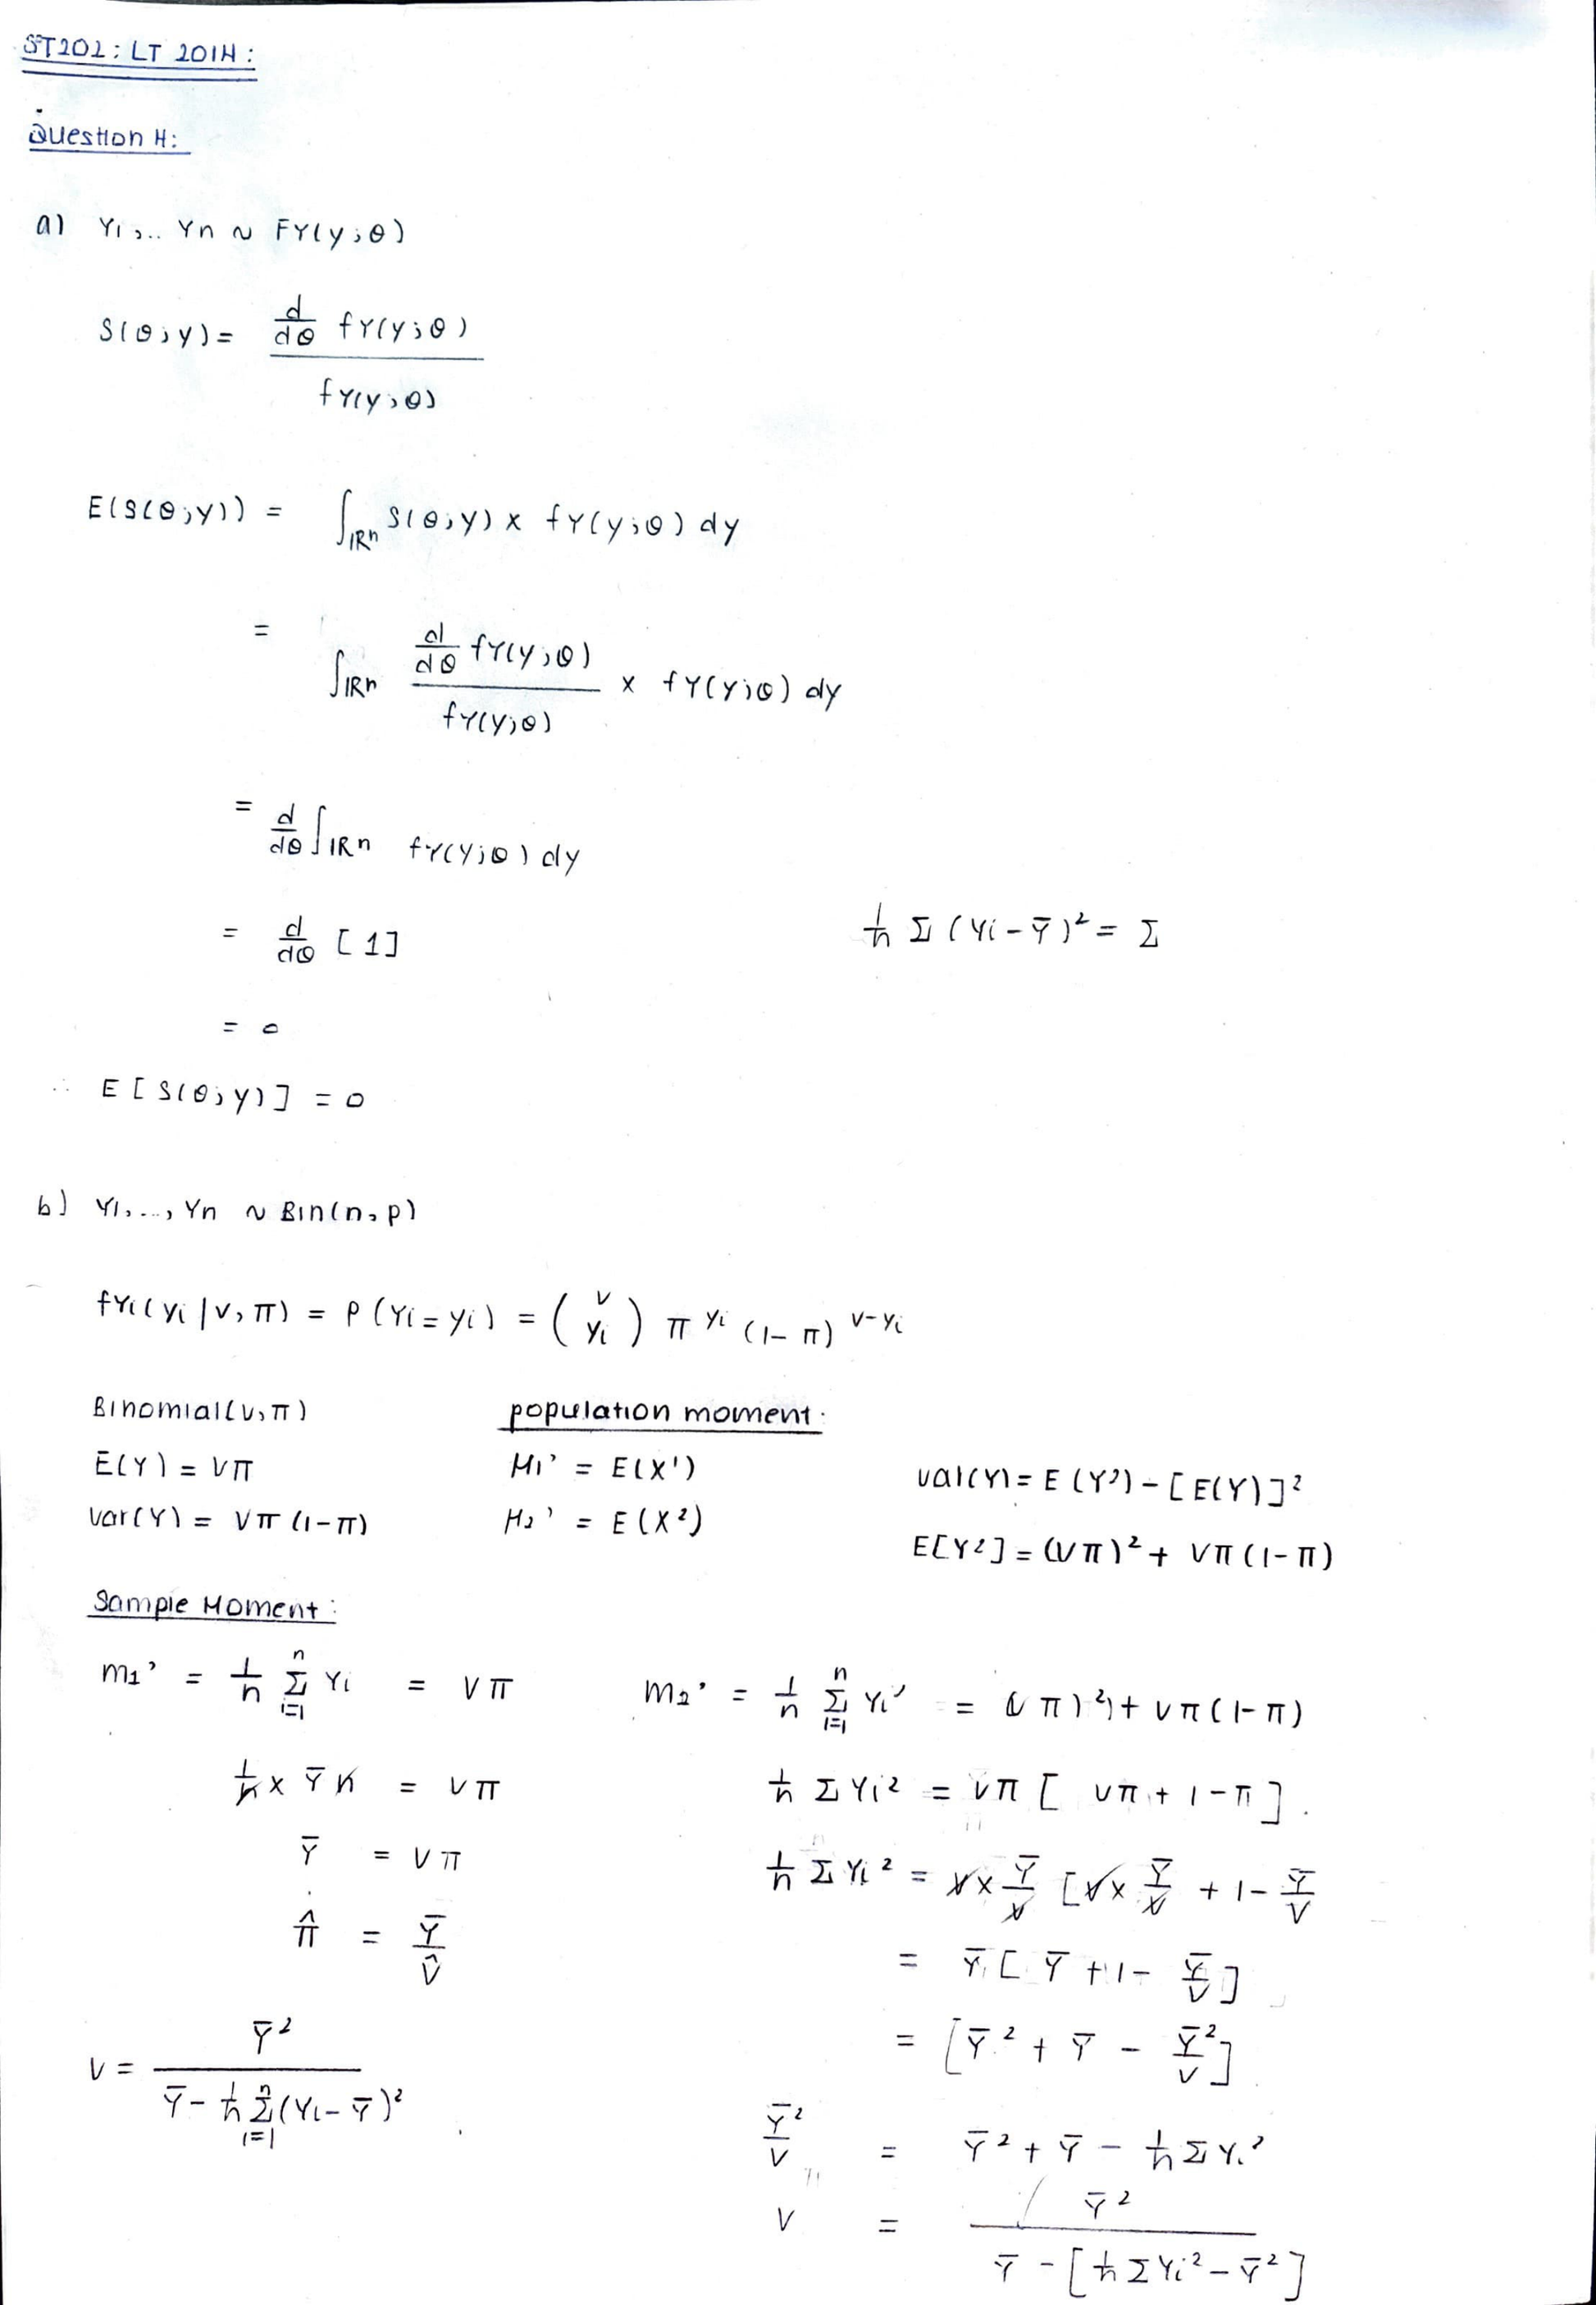 ST202: LT 2014:
Question 4:
a) Y1,.. Yn ~ FY(y;θ)
S(θ;y) = d/dθ fY(y;θ) / fY(y;θ)
E(S(θ;Y)) = ∫ℝⁿ S(θ;y) × fY(y;θ) dy
= ∫ℝⁿ d/dθ fY(y;θ) / fY(y;θ) × fY(y;θ) dy
= d/dθ ∫ℝⁿ fY(y;θ) dy
= d/dθ [1]
1/n Σ (Yi - Ȳ)² = Σ
= 0
∴ E[S(θ;y)] = 0
b) Y1,..., Yn ~ Bin(n,p)
fYi(yi|v,π) = P(Yi=yi) = (v yi) π^yi (1-π)^v-yi
Binomial(v,π)
E(Y) = vπ
var(Y) = vπ(1-π)
population moment:
M1' = E(X')
M2' = E(X²)
var(Y) = E(Y²) - [E(Y)]²
E[Y²] = (vπ)² + vπ(1-π)
Sample Moment:
m1' = 1/n Σ_{i=1}^n Yi = vπ
1/n × Ȳ n = vπ
Ȳ = vπ
π̂ = Ȳ/v̂
v = Ȳ² / Ȳ - 1/n Σ_{i=1}^n (Yi - Ȳ)²
m2' = 1/n Σ_{i=1}^n Yi² = (vπ)² + vπ(1-π)
1/n Σ Yi² = vπ [ vπ + 1 - π ]
1/n Σ Yi² = v × Ȳ/v [v × Ȳ/v + 1 - Ȳ/v
= Ȳ [ Ȳ + 1 - Ȳ/v ]
= [Ȳ² + Ȳ - Ȳ²/v]
Ȳ²/v = Ȳ² + Ȳ - 1/n Σ Yi²
v = Ȳ² / Ȳ - [1/n Σ Yi² - Ȳ²]